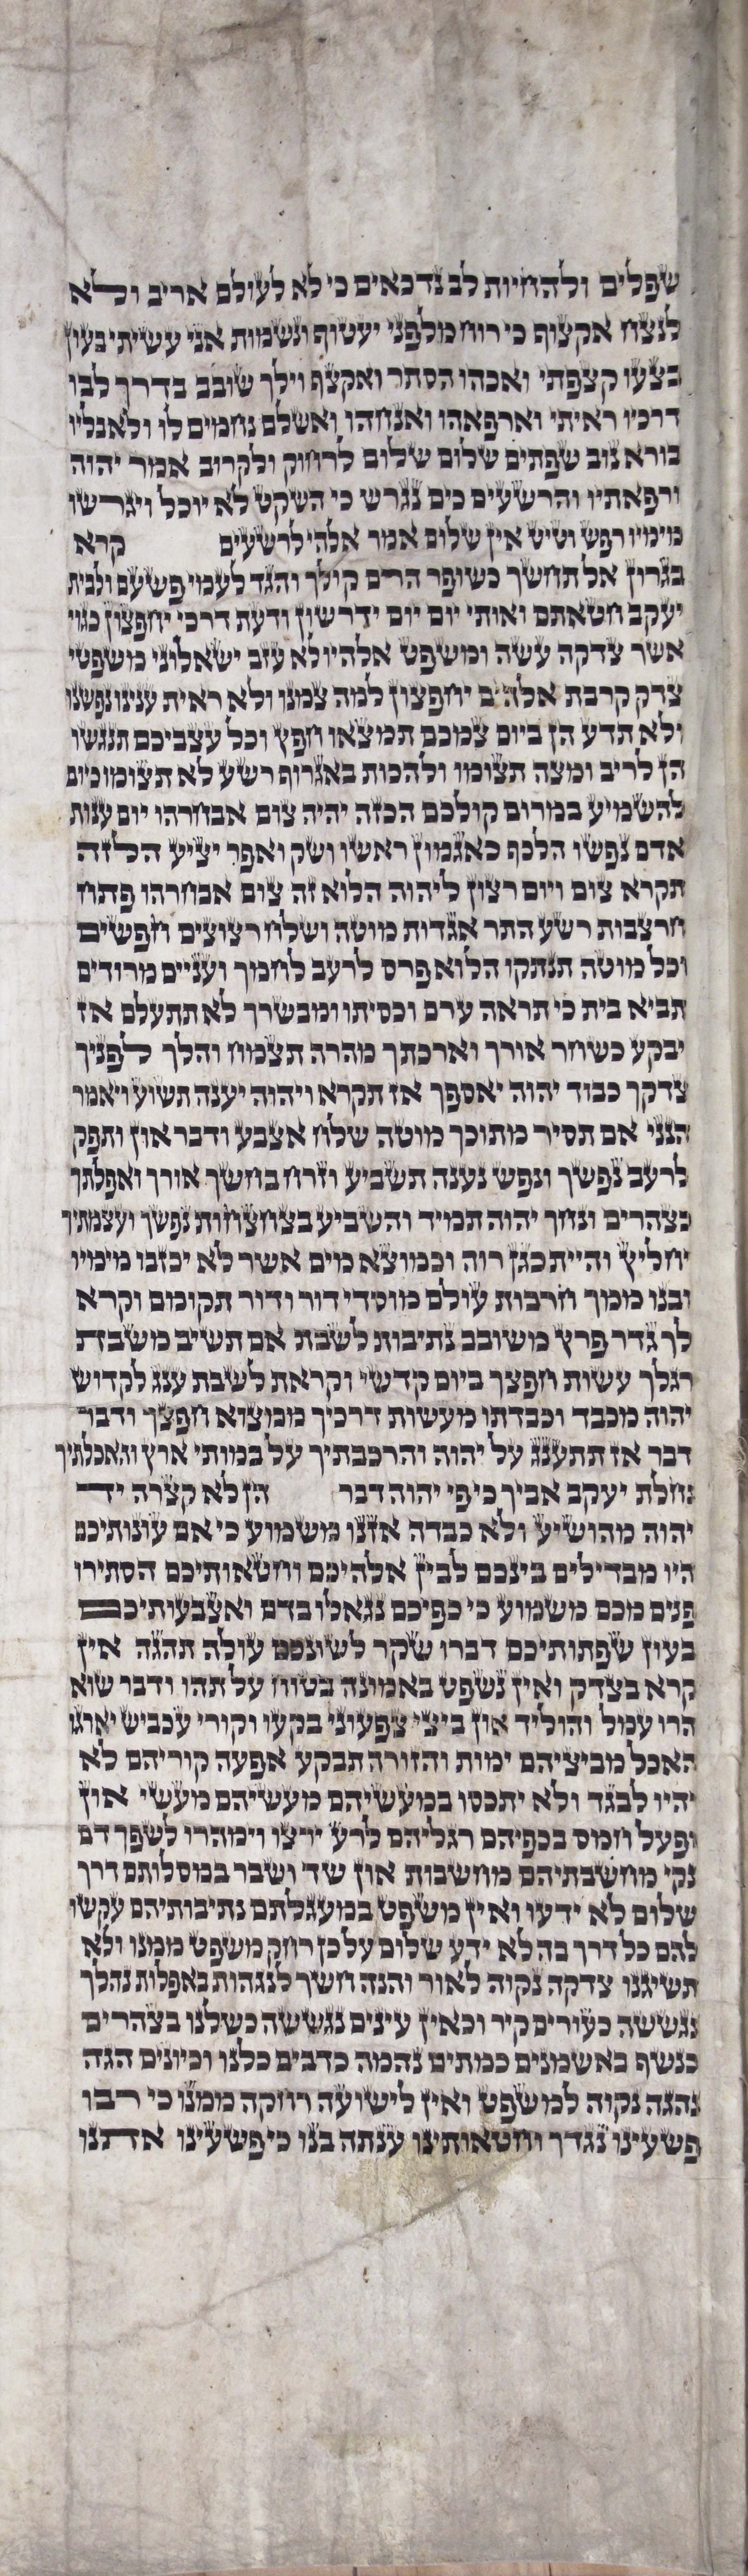 שפלים ולהחיות לב נדכאים כי לא לעולם אריב ולא
לנצח אקצוף כי רוח מלפני יעטוף ונשמות אני עשיתי בעון
בצעו קצפתי ואכהו הסתר ואקצף וילך שובב בדרך לבו
דרכיו ראיתי וארפאהו ואנחהו ואשלם נחמים לו ולאבליו
בורא נוב שפתים שלום שלום לרחוק ולקרוב אמר יהוה
ורפאתיו והרשעים כים נגרש כי השקט לא יוכל ויגרשו
מימיו רפש וטיט אין שלום אמר אלהי לרשעים קרא
בגרון אל תחשך כשופר הרם קולך והגד לעמי פשעם ולבית
יעקב חטאתם ואותי יום יום ידרשון ודעת דרכי יחפצון כגוי
אשר צדקה עשה ומשפט אלהיו לא עזב ישאלוני משפטי
צדק קרבת אלהים יחפצון למה צמנו ולא ראית ענינו נפשנו
ולא תדע הן ביום צמכם תמצאו חפץ וכל עצביכם תנגשו
הן לריב ומצה תצומו ולהכות באגרוף רשע לא תצומו כיום
להשמיע במרום קולכם הכזה יהיה צום אבחרהו יום ענות
אדם נפשו הלכף כאגמון ראשו ושק ואפר יציע הלזה
תקרא צום ויום רצון ליהוה הלוא זה צום אבחרהו פתוח
חרצבות רשע התר אגדות מוטה ושלח רצוצים חפשים
וכל מוטה תנתקו הלוא פרס לרעב לחמך ועניים מרודים
תביא בית כי תראה ערם וכסיתו ומבשרך לא תתעלם אז
יבקע כשחר אורך וארכתך מהרה תצמח והלך לפניך
צדקך כבוד יהוה יאספך אז תקרא ויהוה יענה תשוע ויאמר
הנני אם תסיר מתוכך מוטה שלח אצבע ודבר און ותפק
לרעב נפשך ונפש נענה תשביע וזרח בחשך אורך ואפלתך
כצהרים ונחך יהוה תמיד והשביע בצחצחות נפשך ועצמתיך
יחליץ והיית כגן רוה וכמוצא מים אשר לא יכזבו מימיו
ובנו ממך חרבות עולם מוסדי דור ודור תקומם וקרא
לך גדר פרץ משובב נתיבות לשבת אם תשיב משבת
רגלך עשות חפצך ביום קדשי וקראת לשבת ענג לקדוש
יהוה מכבד וכבדתו מעשות דרכיך ממצוא חפצך ודבר
דבר אז תתענג על יהוה והרכבתיך על במותי ארץ והאכלתיך
נחלת יעקב אביך כי פי יהוה דבר הן לא קצרה יד
יהוה מהושיע ולא כבדה אזנו משמוע כי אם עונותיכם
היו מבדילים בינכם לבין אלהיכם וחטאותיכם הסתירו
פנים מכם משמוע כי כפיכם נגאלו בדם ואצבעותיכם
בעון שפתותיכם דברו שקר לשונכם עולה תהגה אין
קרא בצדק ואין נשפט באמונה בטוח על תהו ודבר שוא
הרו עמל והוליד און ביצי צפעוני בקעו וקורי עכביש יארגו
האכל מביציהם ימות והזורה תבקע אפעה קוריהם לא
יהיו לבגד ולא יתכסו במעשיהם מעשיהם מעשי און
ופעל חמס בכפיהם רגליהם לרע ירצו וימהרו לשפך דם
נקי מחשבתיהם מחשבות און שד ושבר במסלותם דרך
שלום לא ידעו ואין משפט במעגלתם נתיבותיהם עקשו
להם כל דרך בה לא ידע שלום על כן רחק משפט ממנו ולא
תשיגנו צדקה נקוה לאור והנה חשך לנגהות באפלות נהלך
נגששה כעורים קיר וכאין עינים נגששה כשלנו בצהרים
כנשף באשמנים כמתים נהמה כדבים כלנו וכיונים הגה
נהגה נקוה למשפט ואין לישועה רחקה ממנו כי רבו
פשעינו נגדך וחטאותינו ענתה בנו כי פשעינו אתנו